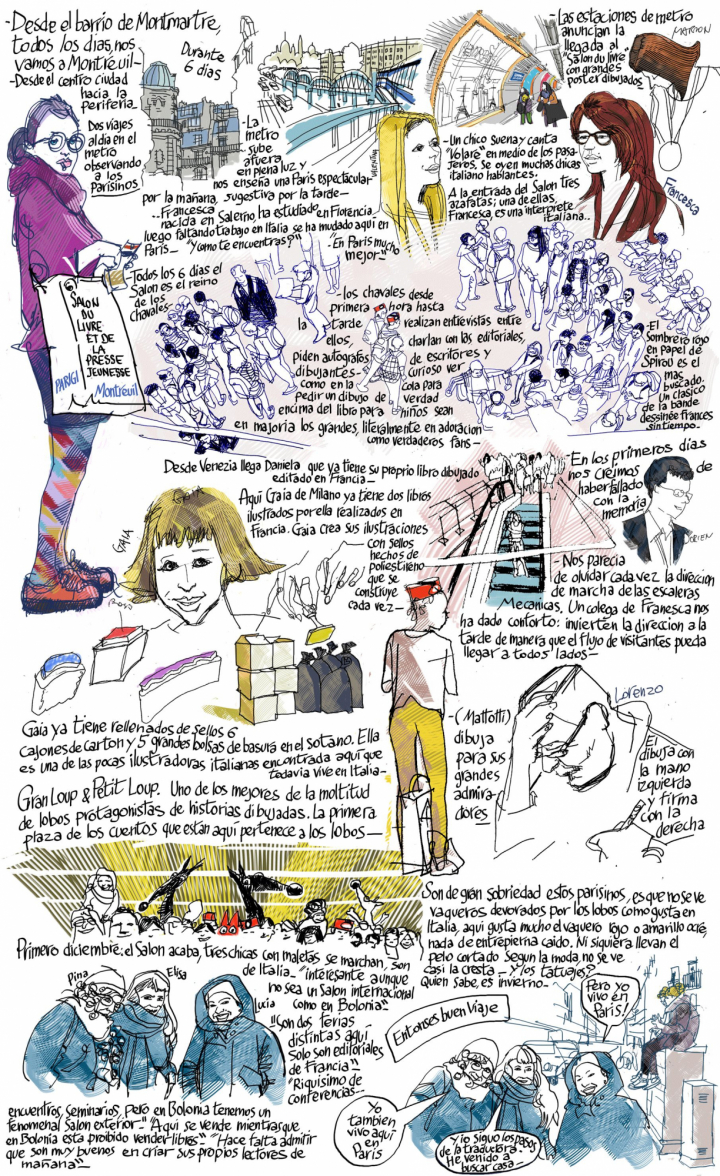 -Desde el barrio de Montmartre,
todos los dias, nos
vamos a Montreuil-
-Desde el centro ciudad
hacia la
periferia-
Dos viajes
al dia en el
metro
observando
a los
Parisinos
Durante
6 dias
-La
metro
sube
afuera
en plena luz y
nos enseña una Paris espectacular
por la mañana, sugestiva por la tarde-
-Las estaciones de metro
anuncian la
llegada al
"Salon du livre"
con grandes
poster dibujados-
MARION
-Un chico suena y canta
"Volare" en medio de los pasa-
jeros. Se oyen muchas chicas
italiano hablantes.
A la entrada del Salon tres
azafatas; una de ellas,
Francesca, es una interprete
italiana..
Francesca
--Francesca
nacida en Salerno, ha estudiado en Florencia,
luego faltando trabajo en Italia se ha mudado aqui en
Paris- "Y como te encuentras?"
-En Paris mucho
mejor-"
SALON
DU
LIVRE
ET DE
LA
PRESSE
JEUNESSE
PARIGI
Montreuil
-Todos los 6 dias el
Salon es el reino
de los
chavales-
-los chavales desde
primera hora hasta
la tarde realizan entrevistas entre
ellos, charlan con las editoriales,
piden autografos de escritores y
dibujantes- curioso ver
como en la cola para
pedir un dibujo de verdad
encima del libro para niños sean
en majoria los grandes, literalmente en adoracion
como verdaderos fans-
-El
sombrero rojo
en papel de
Spirou es el
mas
buscado.
Un clasico
de la bande
dessinée frances
sin tiempo-
Desde Venezia llega Daniela que ya tiene su proprio libro dibujado
editado en Francia-
Aqui Gaia de Milano ya tiene dos libros
ilustrados por ella realizados en
Francia. Gaia crea sus ilustraciones
con sellos
hechos de
poliestileno
que se
construye
cada vez-
GAIA
-En los primeros dias
nos creimos de
haber fallado
con la
memoria
-Nos parecia
de olvidar cada vez la direccion
de marcha de las escaleras
Mecanicas. Un colega de Franesca nos
ha dado conforto: invierten la direccion a la
tarde de manera que el flujo de visitantes pueda
llegar a todos lados-
Gaia ya tiene rellenados de sellos 6
cajones de carton y 5 grandes bolsas de basura en el sotano. Ella
es una de las pocas ilustradoras italianas encontrada aqui que
todavia vive en Italia-
-(Mattotti)
dibuja
para sus
grandes
admira-
dores
Lorenzo
El
dibuja con
la mano
izquierda
y firma
con la
derecha
Gran Loup & Petit Loup. Uno de los mejores de la moltitud
de lobos protagonistas de historias dibujadas. La primera
plaza de los cuentos que estan aqui pertenece a los lobos-
Son de gran sobriedad estos parisinos, es que no se ve
vaqueros devorados por los lobos como gusta en
Italia, aqui gusta mucho el vaquero rojo o amarillo ocre,
nada de entrepierna caido. Ni siquiera llevan el
pelo cortado. Segun la moda, no se ve
casi la cresta- ...y los tatuajes?
Quien sabe, es invierno-
Primero diciembre: el Salon acaba, tres chicas con maletas se marchan, son
de Italia-
"interesante aunque
no sea un Salon internacional
como en Bolonia"
Pina
Elisa
Lucia
"Son dos ferias
distintas aqui
solo son editoriales
de Francia"
"Riquisimo de
conferencias--
encuentros, seminarios, pero en Bolonia tenemos un
fenomenal Salon exterior-" "Aqui se vende mientras que
en Bolonia esta proibido vender libros" "Hace falta admitir
que son muy buenos en criar sus propios lectores de
mañana"-
Entonses buen viaje
Pero yo
vivo en
Paris!
Yo
tambien
vivo aqui
en
Paris
Y io siguo los pasos
de la traductora-
He venido a
buscar casa-